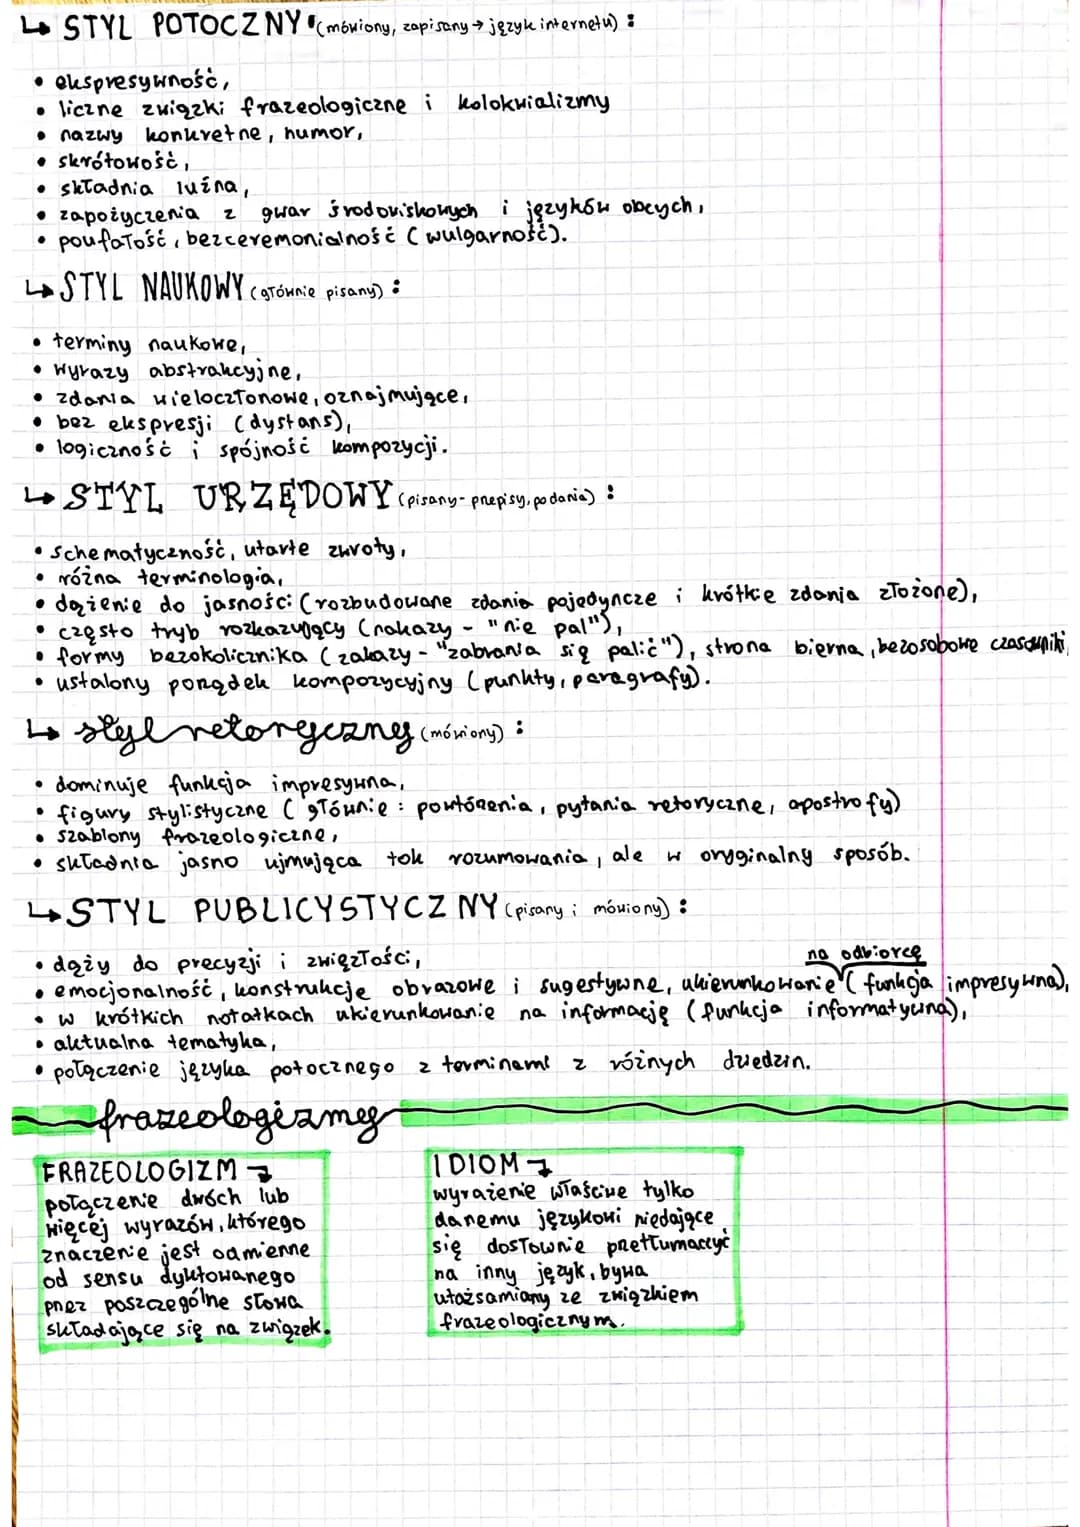 ↳ STYL POTOCZNY (mówiony, zapisany → język internetu) :
• ekspresywność,
• liczne związki frazeologiczne i kolokwializmy
• nazwy konkretne, humor,
• skrótowość,
• składnia luźna,
• zapożyczenia z gwar środowiskowych i języków obcych,
• poufałość, bezceremonialność (wulgarność).
↳ STYL NAUKOWY (głównie pisany) :
• terminy naukowe,
• wyrazy abstrakcyjne,
• zdania wieloczłonowe, oznajmujące,
• bez ekspresji (dystans),
• logiczność i spójność kompozycji.
↳ STYL URZĘDOWY (pisany - przepisy, podania) :
• schematyczność, utarte zwroty,
• różna terminologia,
• dążenie do jasności (rozbudowane zdania pojedyncze i krótkie zdania złożone),
• często tryb rozkazujący (nakazy - "nie pal"),
• formy bezokolicznika (zakazy - "zabrania się palić"), strona bierna, bezosobowe czasowniki,
• ustalony porządek kompozycyjny (punkty, paragrafy).
↳ styl retoryczny (mówiony) :
• dominuje funkcja impresywna,
• figury stylistyczne (głównie : powtórzenia, pytania retoryczne, apostrofy)
• szablony frazeologiczne,
• składnia jasno ujmująca tok rozumowania, ale w oryginalny sposób.
↳ STYL PUBLICYSTYCZNY (pisany i mówiony) :
• dąży do precyzji i zwięzłości,
• emocjonalność, konstrukcje obrazowe i sugestywne, ukierunkowanie na odbiorcę (funkcja impresywna),
• w krótkich notatkach ukierunkowanie na informację (funkcja informatywna),
• aktualna tematyka,
• połączenie języka potocznego z terminami z różnych dziedzin.
frazeologizmy
FRAZEOLOGIZM →
połączenie dwóch lub
więcej wyrazów, którego
znaczenie jest odmienne
od sensu dyktowanego
przez poszczególne słowa
składające się na związek.
IDIOM →
wyrażenie właściwe tylko
danemu językowi niedające
się dosłownie przetłumaczyć
na inny język, bywa
utożsamiany ze związkiem
frazeologicznym.